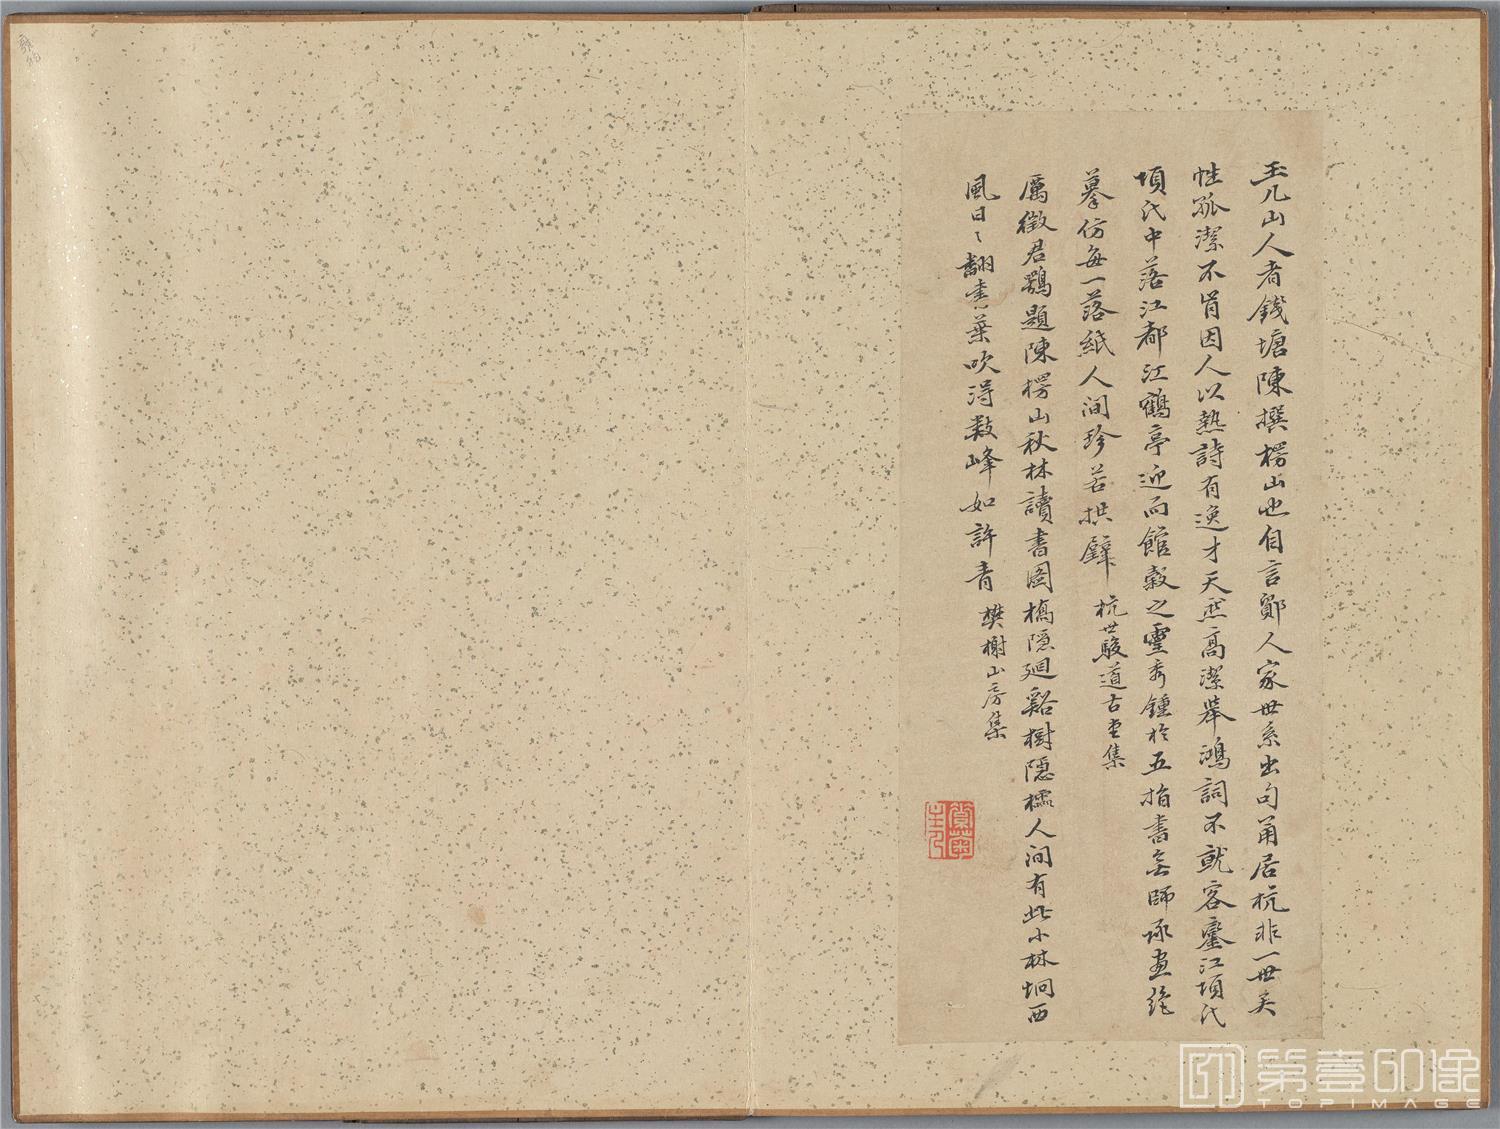 玉几山人者錢塘陳撰楞山也自言鄞人家世系出句甬居杭非一世矣
性孤潔不肯因人以熱詩有逸才天然高潔舉鴻詞不就客鑾江項氏
項氏中落江都江鶴亭迎而館穀之靈秀鍾於五指書無師承畫絕
摹仿每一落紙人間珍若拱璧 杭世駿道古堂集
厲徵君鶚題陳楞山秋林讀書圖橋隱廻谿樹隱櫺人間有此小林坰西
風日〻翻黃葉吹得數峰如許青 樊榭山房集
第壹印像
TOPIMAGE